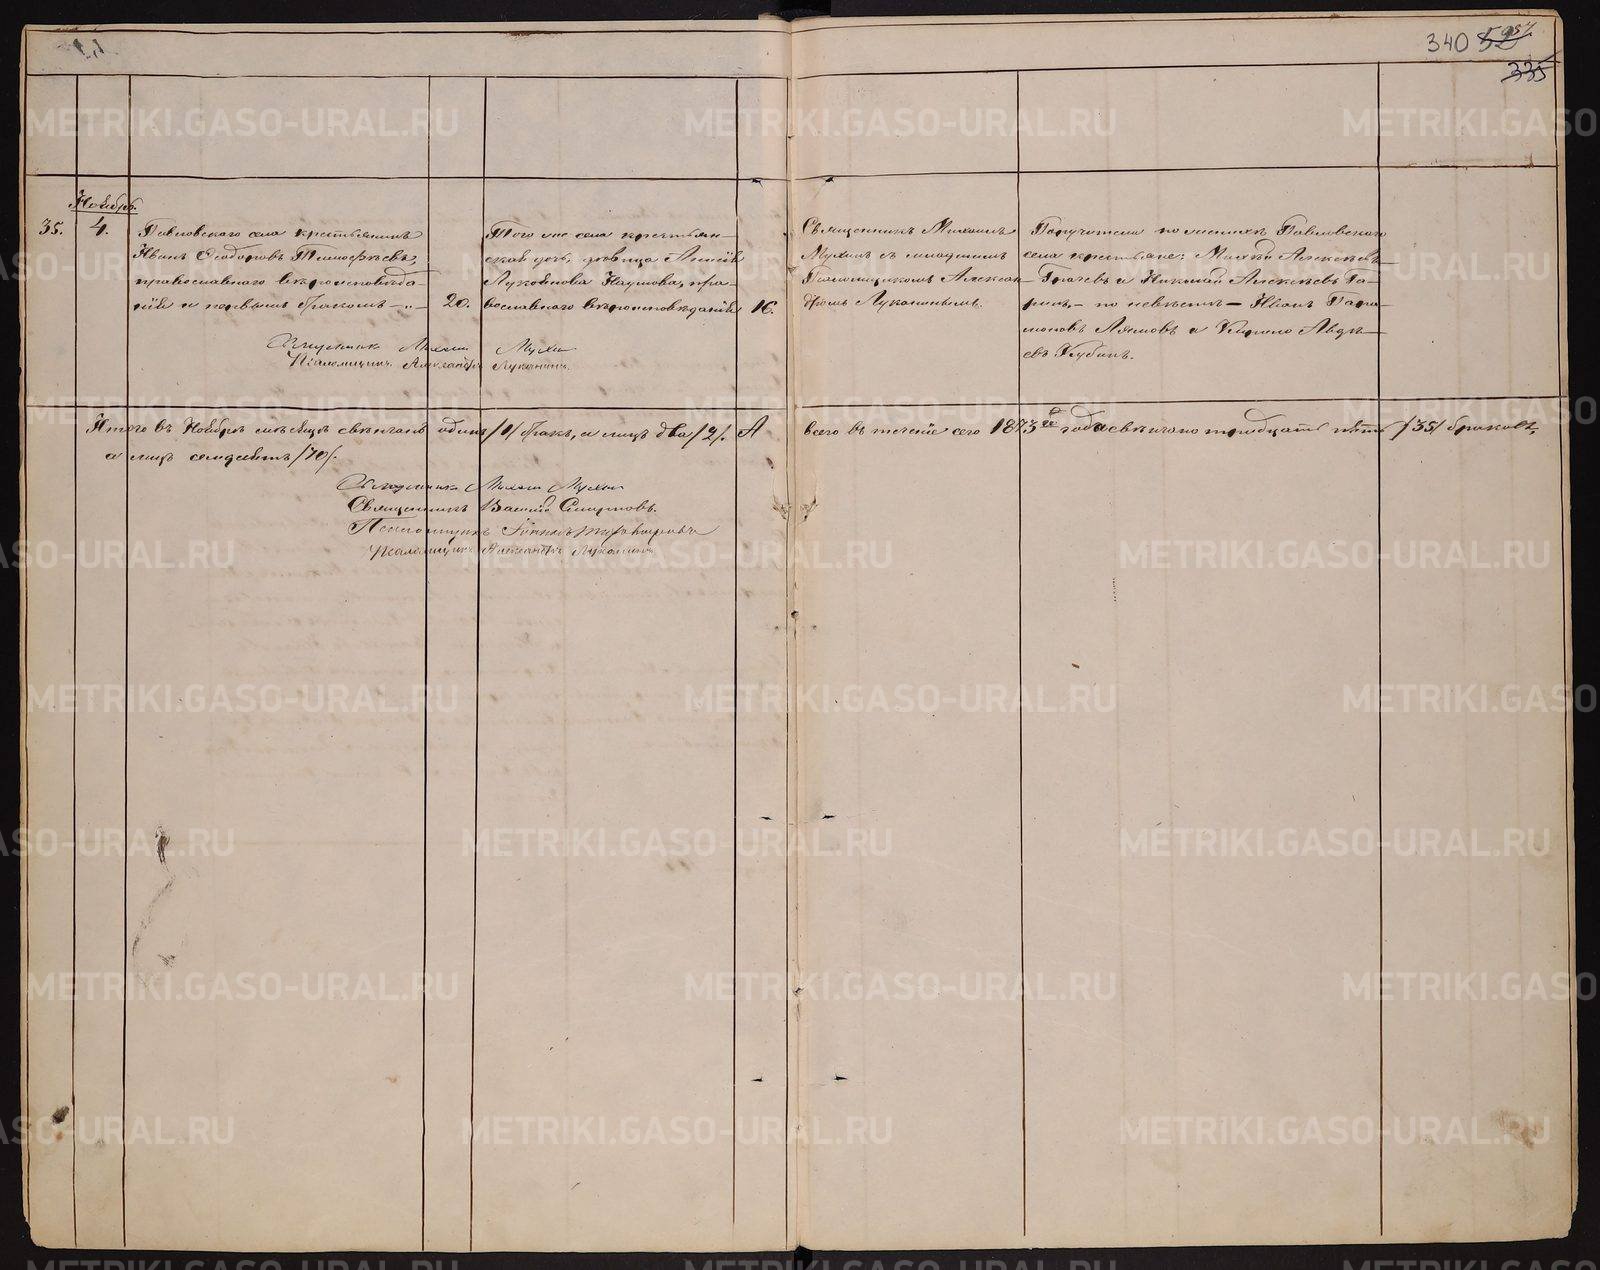 340 52
335
Ноябрь.
35.
4.
Павловскаго села крестьянинъ
Иванъ Ѳеодоровъ Тимоѳеевъ,
православнаго вѣроисповѣда-
нія и первымъ бракомъ —„—
20.
Того же села крестьян-
ская дочь, дѣвица Анисія
Лукоянова Наумова, пра-
вославнаго вѣроисповѣданія
16.
Священникъ Михаилъ
Мухинъ съ младшимъ
Псаломщикомъ Алексан-
дромъ Луканинымъ.
Поручители по женихѣ Павловскаго
села крестьяне: Алексѣевъ
Грачевъ и Николай Алексѣевъ Га-
по невѣстѣ — Иванъ Пара-
моновъ и Авдѣ-
евъ
Священникъ Михаилъ Мухинъ
Псаломщикъ Александръ Луканинъ.
Итого въ Ноябрѣ мѣсяцѣ свѣнчанъ одинъ /1/ бракъ, а лицъ два /2/. А
всего въ теченіе сего 1873го года свѣнчано тридцать пять /35/ браковъ,
а лицъ семдесятъ /70/.
Священникъ Михаилъ Мухинъ
Священникъ Василій Смирновъ.
Псаломщикъ
Псаломщикъ Александръ Луканинъ
METRIKI.GASO-URAL.RU